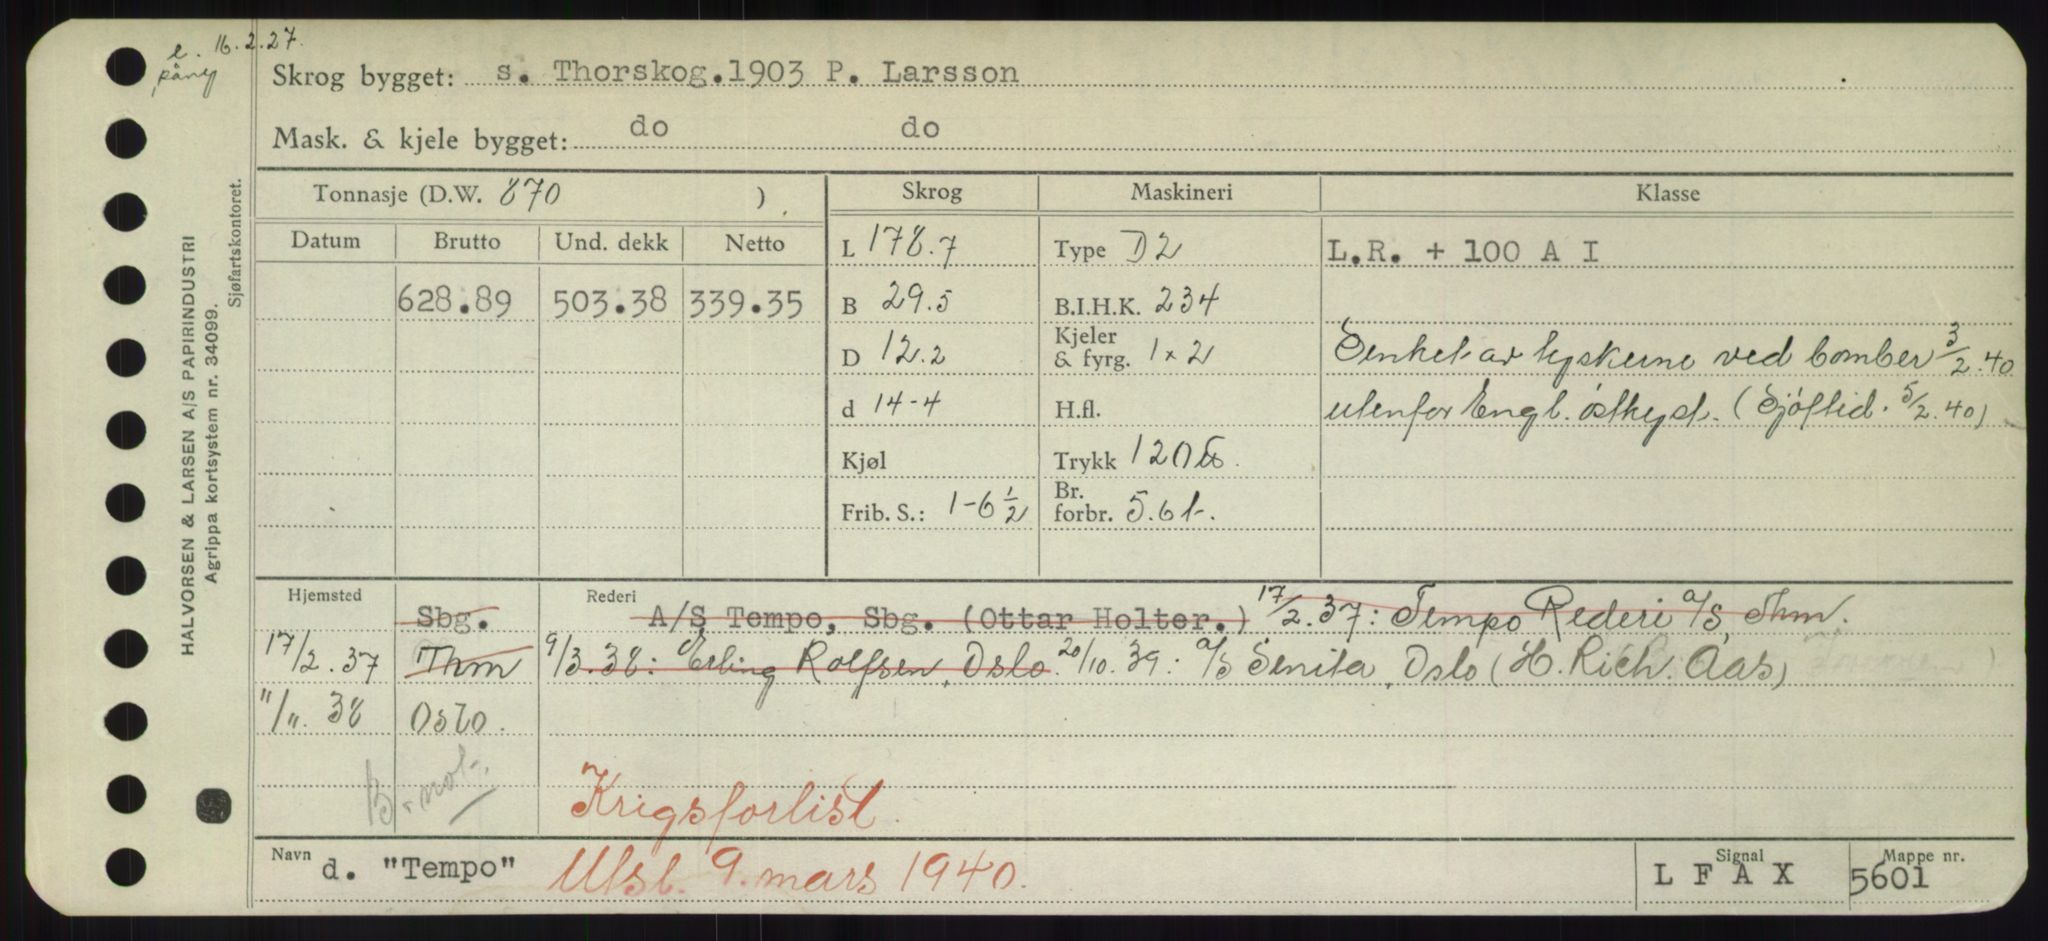 e. 16.2.27.
påny
HALVORSEN & LARSEN A/S PAPIRINDUSTRI
Agrippa kortsystem nr. 34099.
Sjøfartskontoret.
Skrog bygget: s. Thorskog.1903 P. Larsson
Mask. & kjele bygget: do do
Tonnasje (D.W. 870 ) Skrog Maskineri Klasse
Datum Brutto Und. dekk Netto L 178.7 Type D2 L.R. + 100 A I
628.89 503.38 339.35 B 29.5 B.I.H.K. 234
D 12.2 Kjeler & fyrg. 1x2 Senket av tyskerne ved bomber 3/2.40
d 14-4 H.fl. utenfor Engl. østkyst. (Sjøftid. 5/2.40)
Kjøl Trykk 120 ℔.
Frib. S.: 1-6 1/2 Br. forbr. 5.6 t.
Hjemsted Sbg. Rederi A/S Tempo, Sbg. (Ottar Holter.) 17/2.37: Tempo Rederi A/S, Thm.
17/2.37 Thm 9/3.38: Erling Rolfsen, Oslo. 20/10.39: A/S Senita, Oslo (H. Rich. Aas)
"/". 38 Oslo.
B. not.
Krigsforlist.
Navn d. "Tempo" Utsl. 9. mars 1940. Signal L F A X Mappe nr. 5601